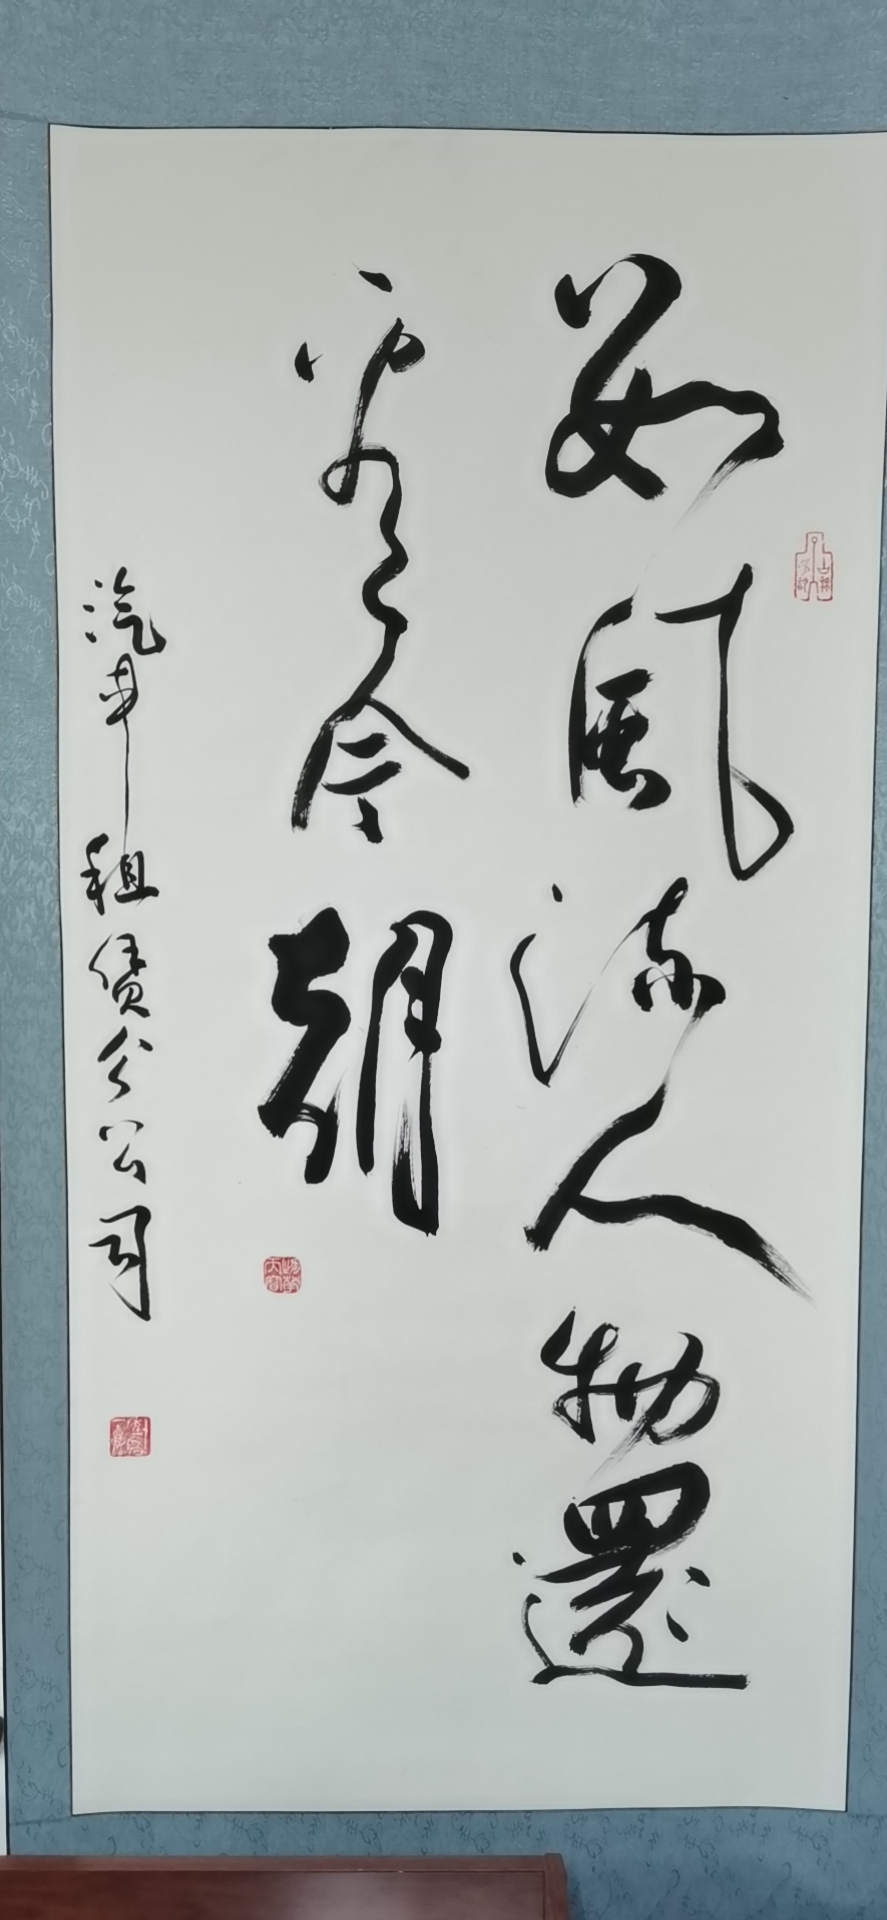 數風流人物還
看今朝
汽車租賃分公司